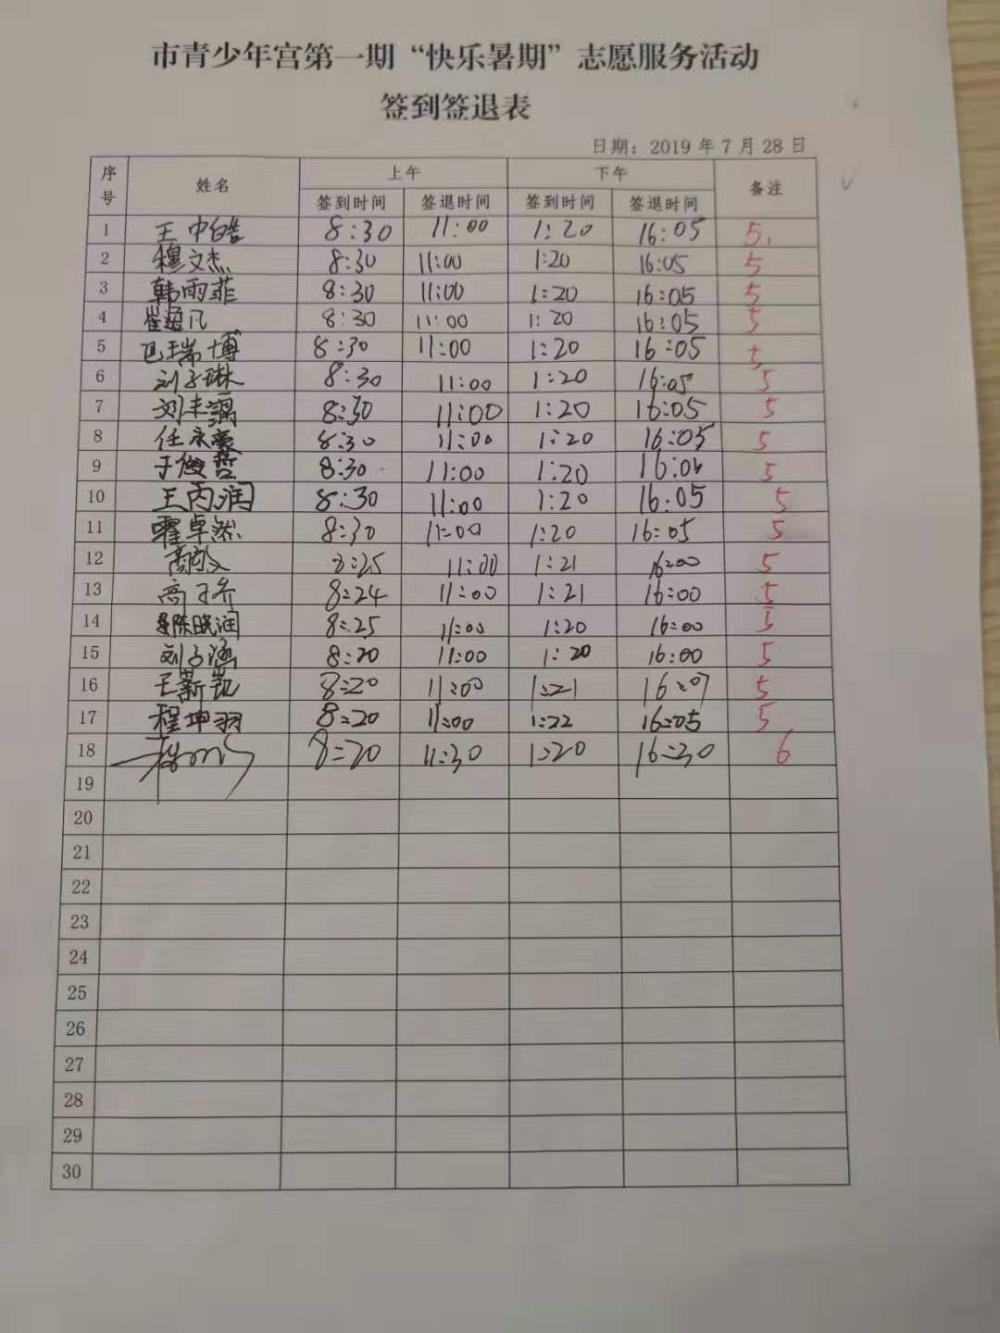 市青少年宫第一期“快乐暑期”志愿服务活动
签到签退表
日期：2019年7月28日
序号 姓名 上午 下午 备注
签到时间 签退时间 签到时间 签退时间
1 王中皓 8:30 11:00 1:20 16:05 5
2 穆文杰 8:30 11:00 1:20 16:05 5
3 韩雨菲 8:30 11:00 1:20 16:05 5
4 崔 凡 8:30 11:00 1:20 16:05 5
5 瑞博 8:30 11:00 1:20 16:05 5
6 刘子琳 8:30 11:00 1:20 16:05 5
7 刘 8:30 11:00 1:20 16:05 5
8 任永豪 8:30 11:00 1:20 16:05 5
9 于俊哲 8:30 11:00 1:20 5
10 王丙润 8:30 11:00 1:20 16:05 5
11 卓然 8:30 11:00 1:20 16:05 5
12 高 8:25 11:00 1:21 16:00 5
13 高子乔 8:24 11:00 1:21 16:00 5
14 陈晓润 8:25 11:00 1:20 16:00 5
15 刘子涵 8:20 11:00 1:20 16:00 5
16 王薪凯 8:20 11:00 1:21 16:07 5
17 程坤羽 8:20 11:00 1:22 16:05 5
18 8:20 11:30 1:20 16:30 6
19
20
21
22
23
24
25
26
27
28
29
30